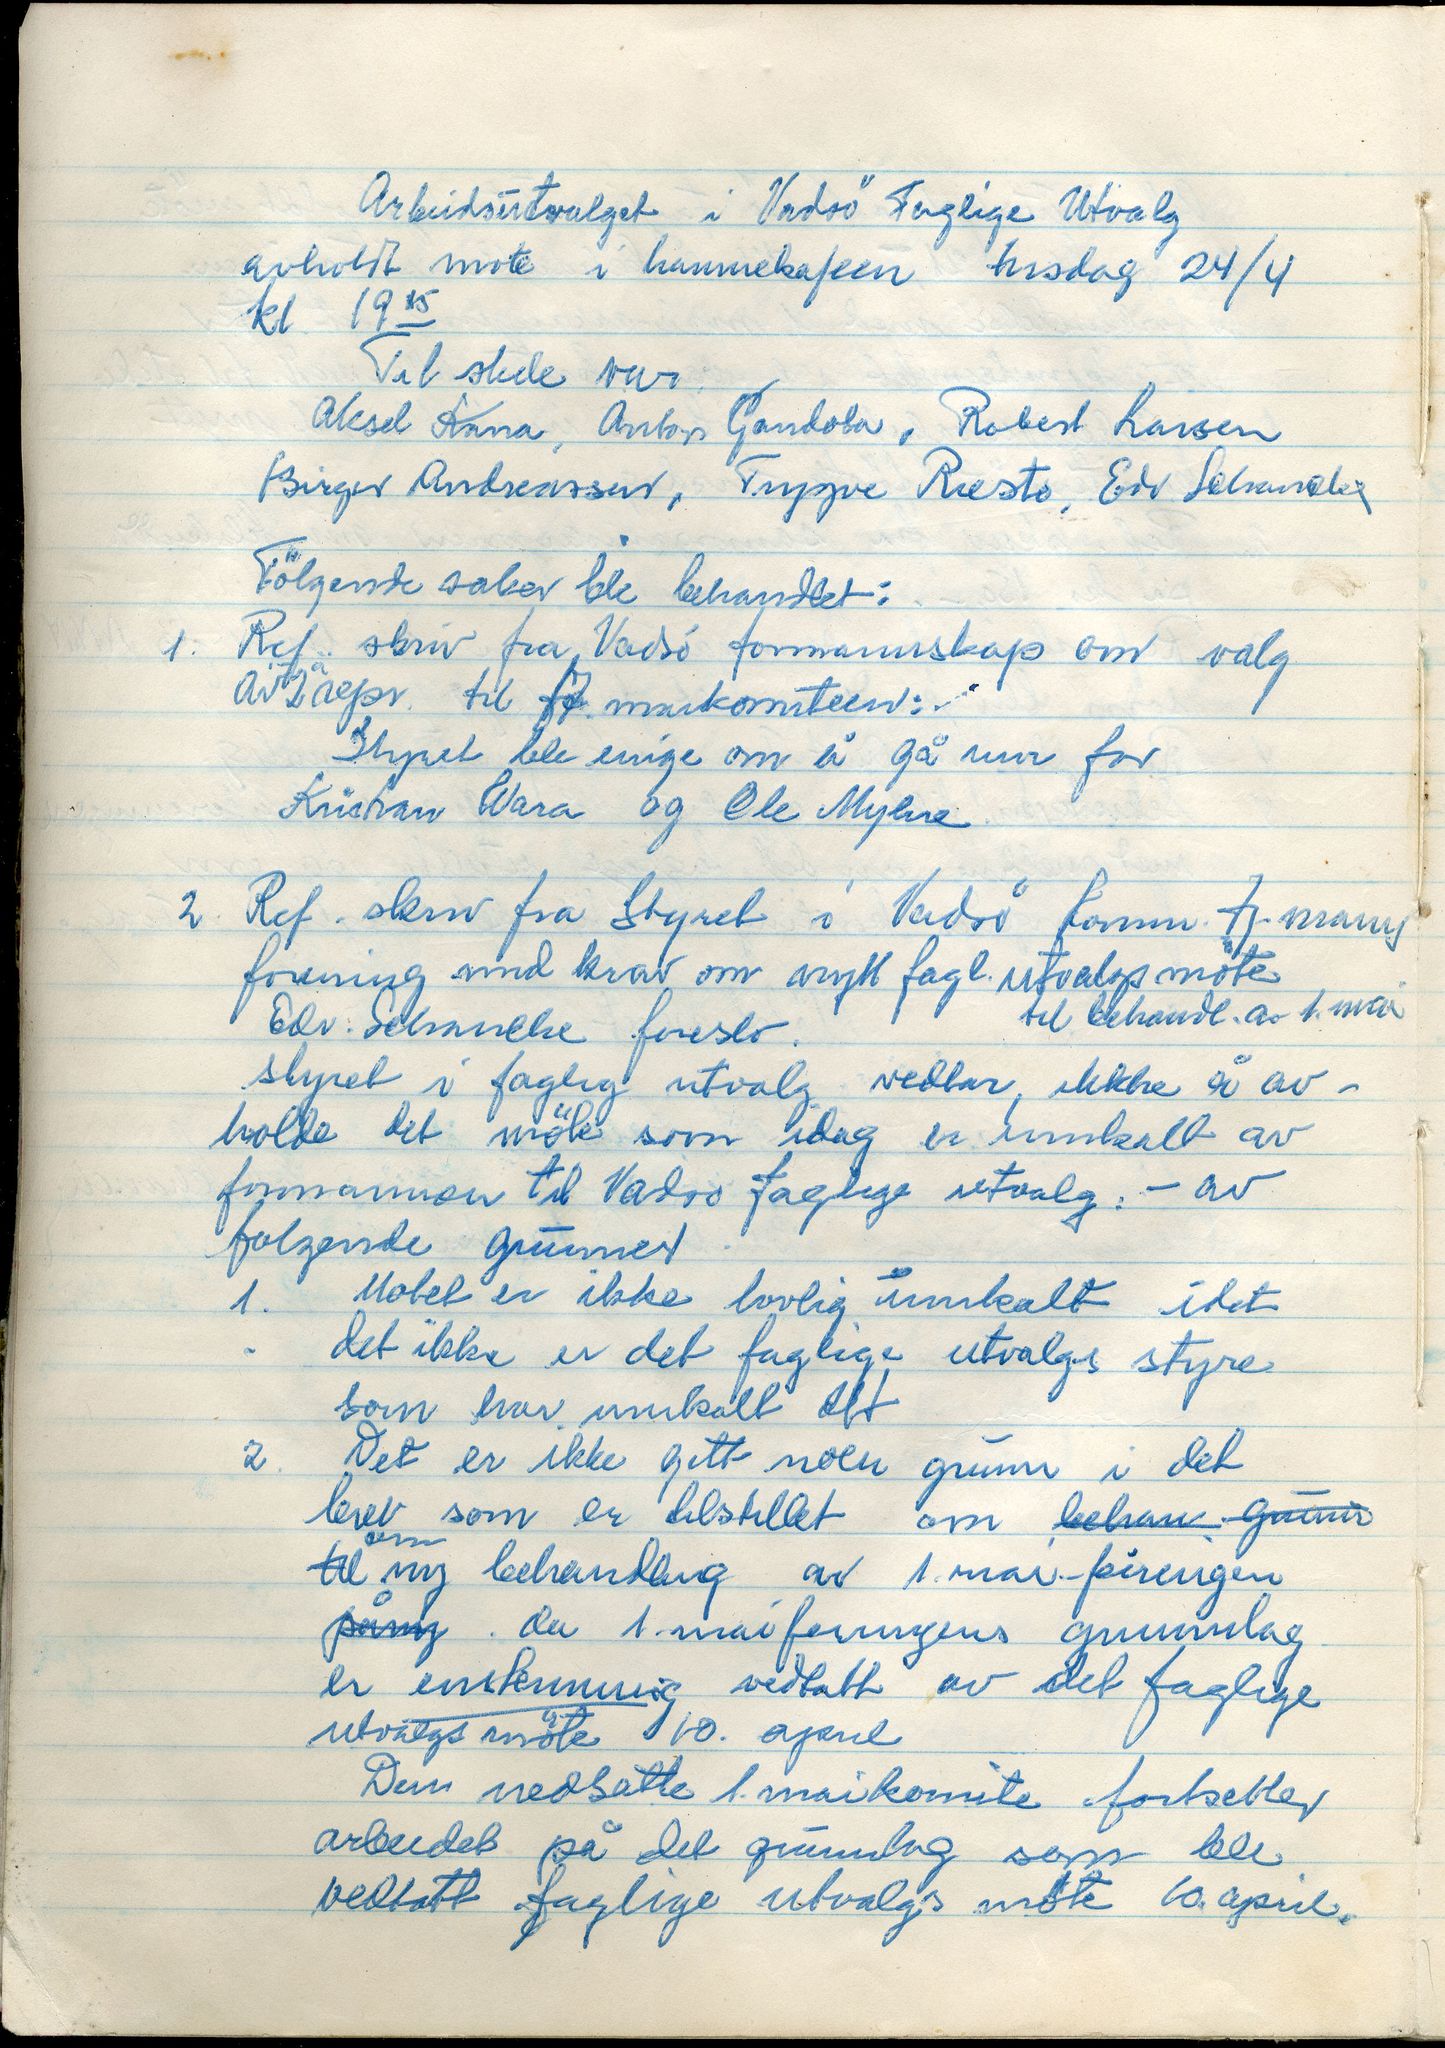 Arbeidsutvalget i Vadsö Faglige Utvalg
avholdt möte i havnekafeen tirsdag 24/4
kl 19 15
Til stede var.
Aksel Kana, Anton Gandola, Robert Larsen
Birger Andreassen, Trygve Riesto, Edv Schancke
Fölgende saker ble behandlet:
1. Ref. skriv fra Vadsö formannskap om valg
av 2 repr. til 17. maikomiteen:
Styret ble enige om å gå inn for
Kristian Wara og Ole Myhre
2. Ref. skriv fra Styret i Vadsö komm. tj. manns
forening med krav om nytt fagl. utvalgs möte
til behandl. av 1. mai
Edv. Schancke foreslo.
styret i faglig utvalg vedtar, ikke å av-
holde det möte som idag er innkalt av
formannen til Vadsö faglige utvalg: - av
folgende grunner
1. Motet er ikke lovlig innkalt idet
det ikke er det faglige utvalgs styre
som har innkalt det
2. Det er ikke gitt noen grunn i det
brev som er tilstillet om behan grunn
til om ny behandling av 1. mai-feiringen
på ny da 1. mai feiringens grunnlag
er enstemmig vedtatt av det faglige
utvalgs möte 10. april
Den nedsatte 1. maikomite fortsetter
arbeidet på det grunnlag som ble
vedtatt faglige utvalgs möte 10. april.